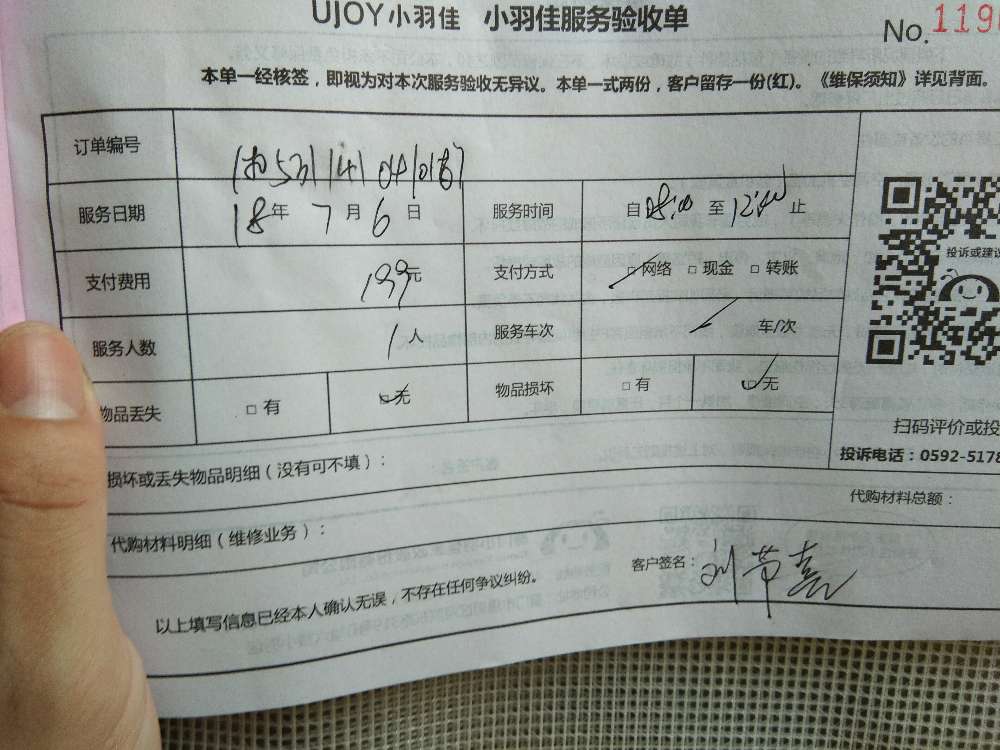 UJOY小羽佳 小羽佳服务验收单
No. 119
本单一经核签，即视为对本次服务验收无异议。本单一式两份，客户留存一份(红)。《维保须知》详见背面。
订单编号
服务日期 18年 7月 6日 服务时间 自08:00 至12:00止
支付费用 199元 支付方式 □网络 □现金 □转账
服务人数 1人 服务车次 车/次
物品丢失 □有 □无 物品损坏 □有 □无
投诉或建议
扫码评价或投
投诉电话：0592-5178
损坏或丢失物品明细（没有可不填）：
代购材料总额：
代购材料明细（维修业务）：
客户签名：
以上填写信息已经本人确认无误，不存在任何争议纠纷。